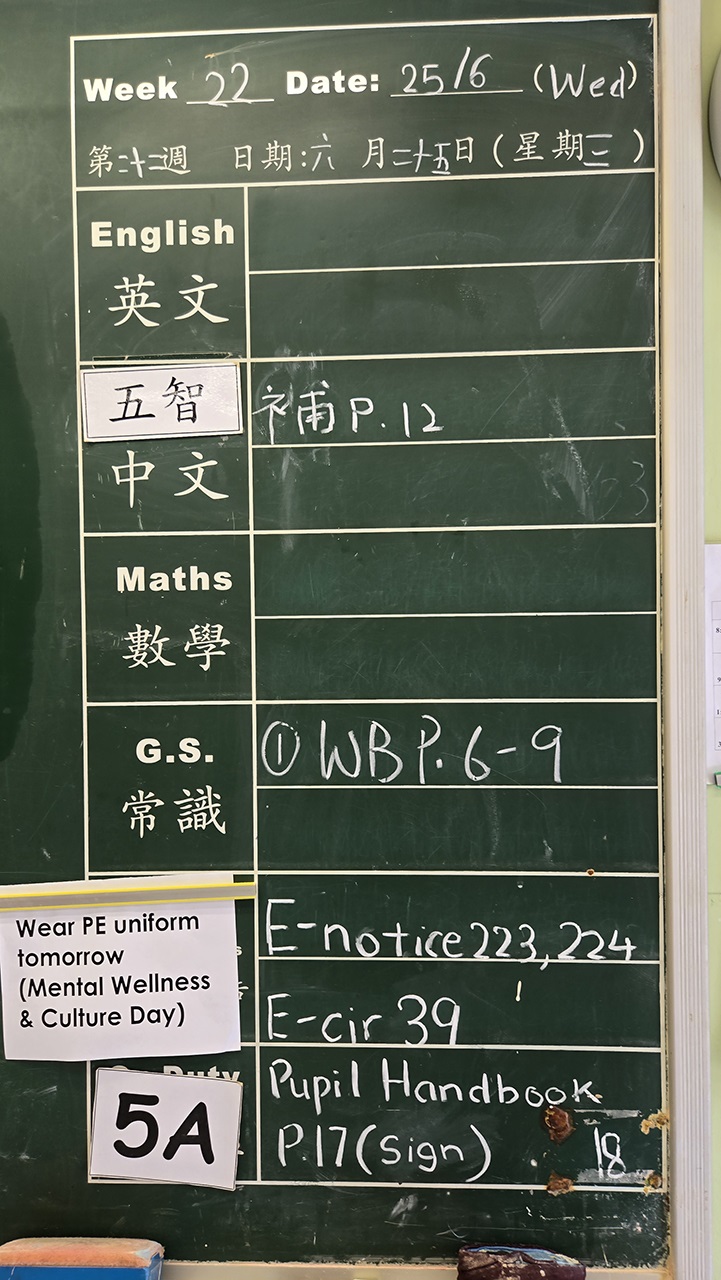 Week 22 Date: 25/6 (Wed)
第二十二週 日期:六 月二十五日 (星期三)
English
英文
五智
補 P.12
中文
Maths
數學
G.S.
① WB P.6-9
常識
E-notice 223, 224
Wear PE uniform
tomorrow
(Mental Wellness
& Culture Day)
E-cir 39
Duty
Pupil Handbook
5A
P.17 (Sign)
18